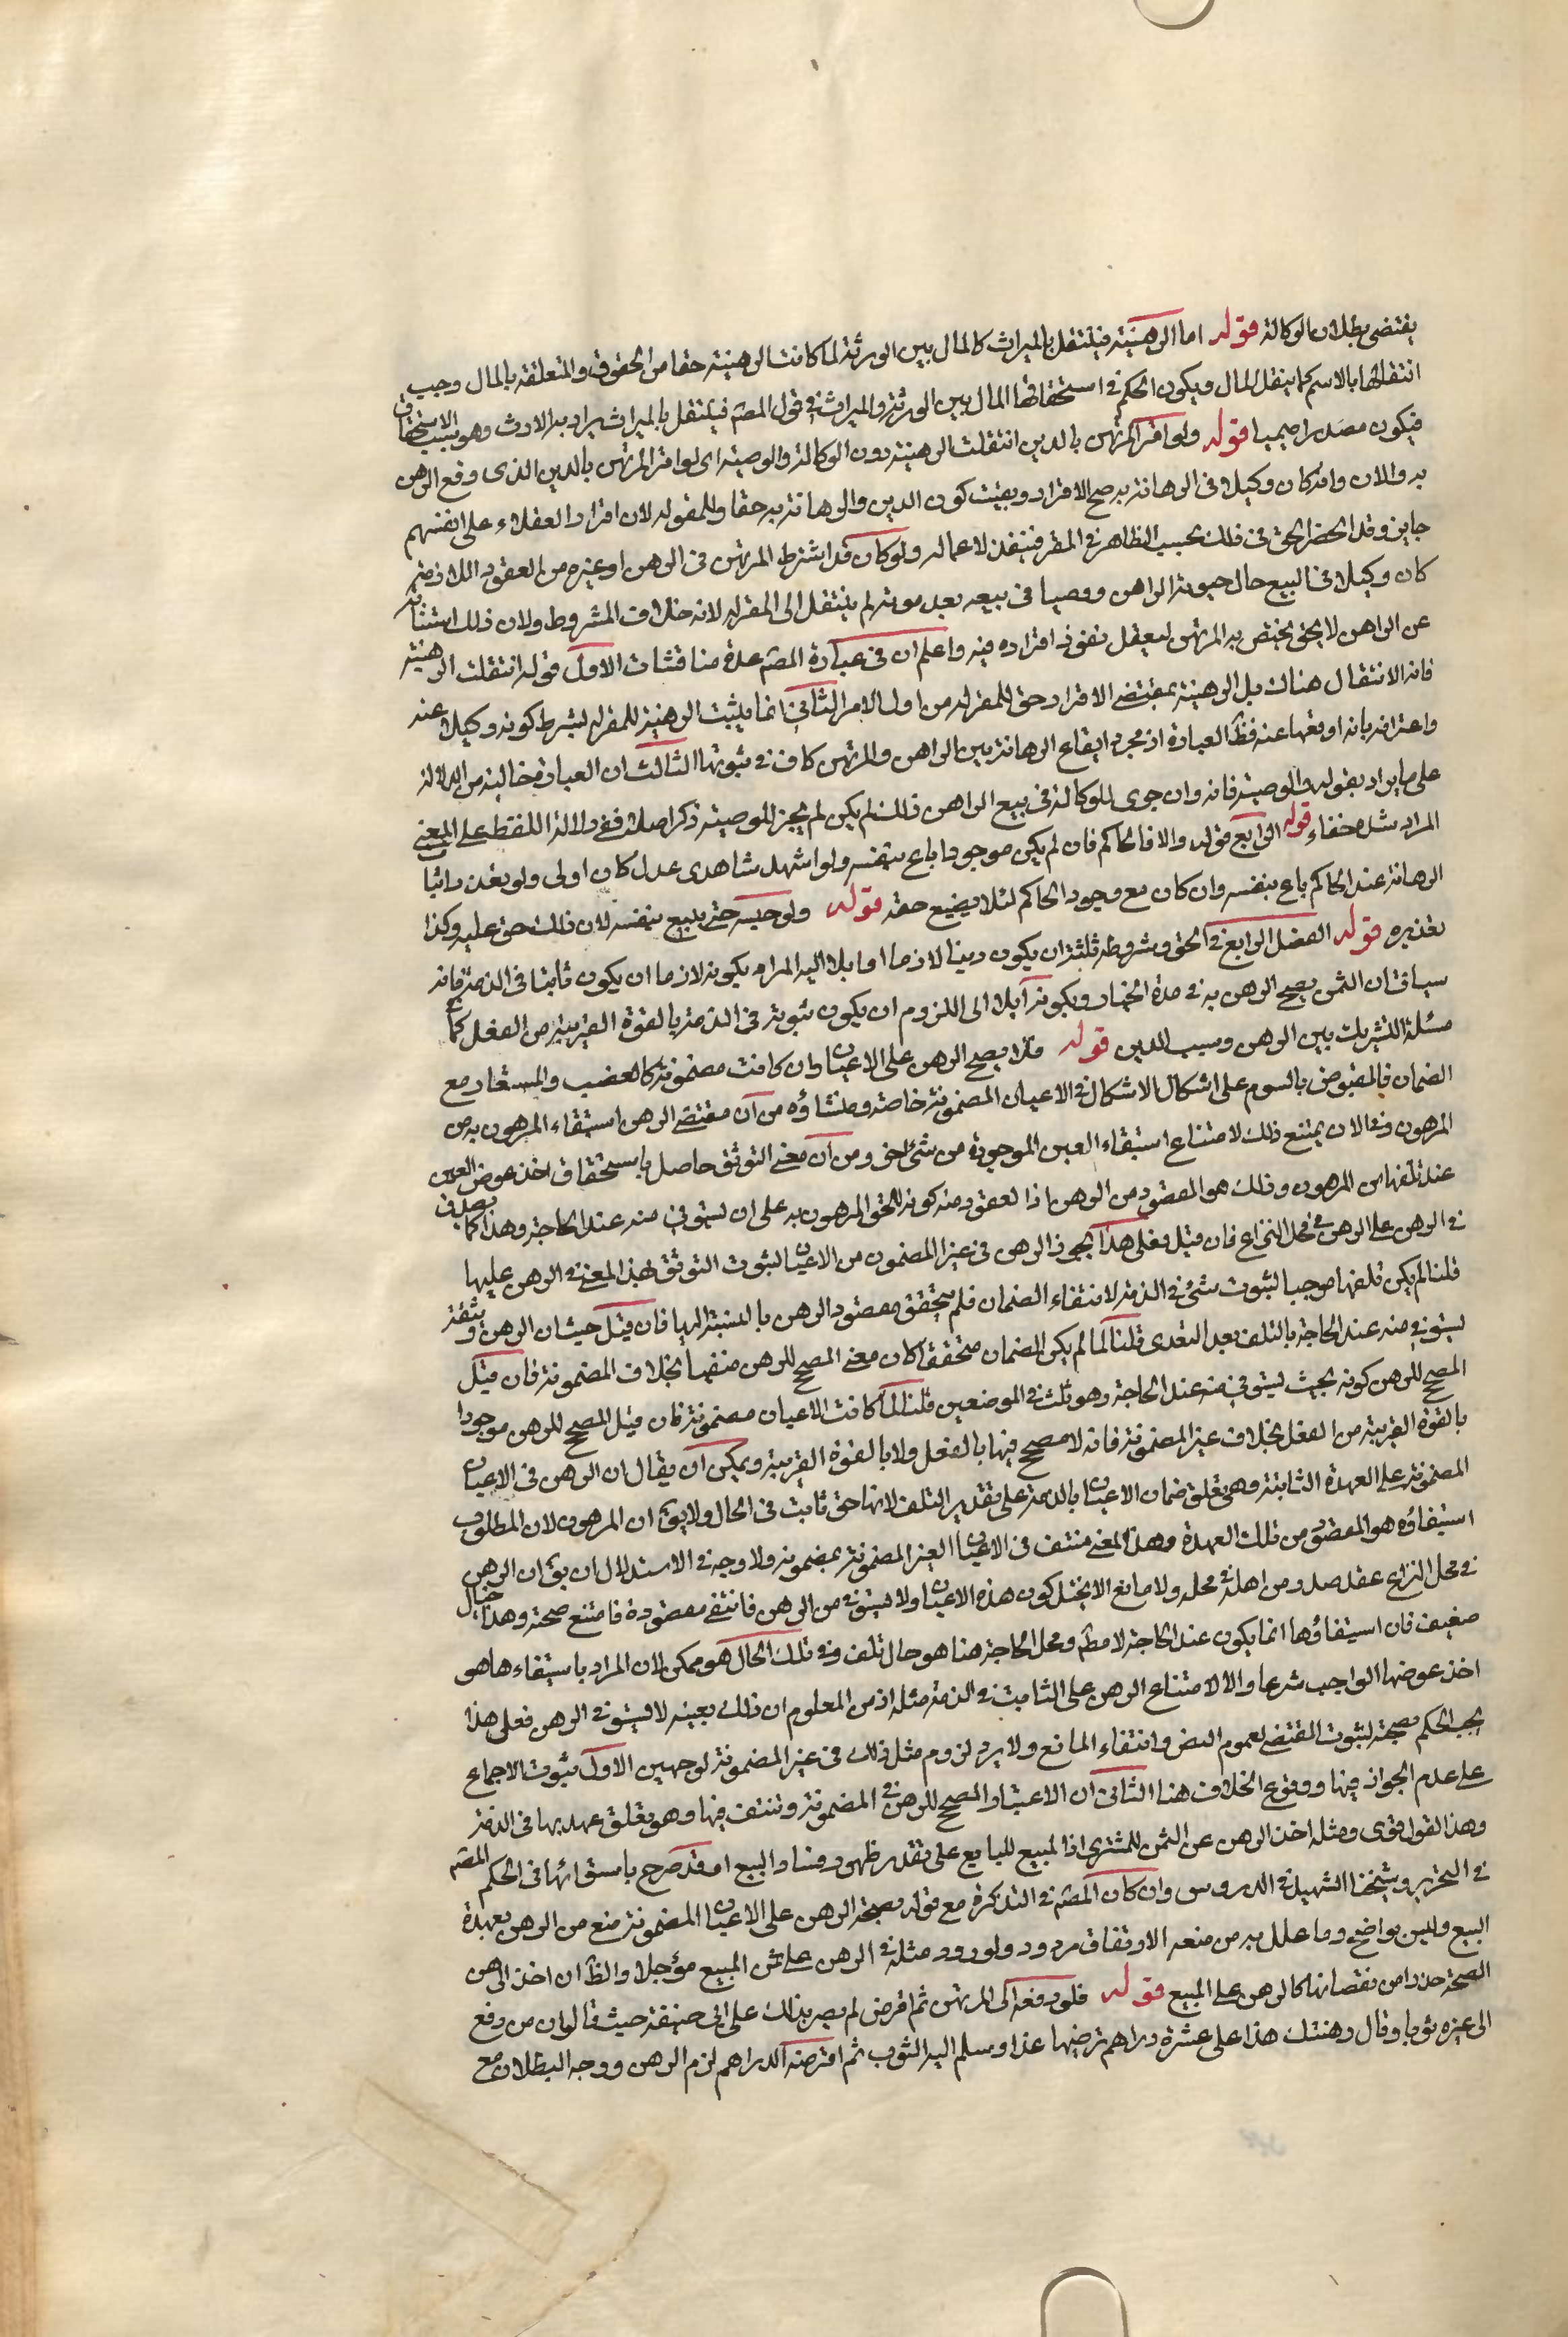 يقتضى بطلان الوكالة قوله اما الرهينة فينتقل بالميراث كالمال بين الورثة لما كانت الرهينة حقا من الحقوق والمتعلقة بالمال وجب
انتقالها بالاسم كما ينقل المال ويكون الحكم في استحقاقها المال بين الورثة والميراث في قول المصم فينتقل بالميراث يراد به الارث وهو سبب الاستحقاق
فيكون مصدرا ميميا قوله ولو اقر المرتهن بالدين انتقلت الرهينة دون الوكالة والوصية اى لو اقر المرتهن بالدين الذى وقع الرهن
به والان وان كان وكيلا فى الرهانة به صح الاقرار ويثبت كون الدين والرهانة به حقا للمقر له لان اقرار العقلاء على انفسهم
جايز وقد انحصر الحق فى ذلك بحسب الظاهر في المقر فينفذ لا عماله ولو كان قد اشترط المرتهن فى الرهن او غيره من العقود اللازمة
كان وكيلا فى البيع حال حيوة الراهن ووصيا فى بيعه بعد موته لم ينتقل الى المقر له لانه خلاف المشروط ولان ذلك استنابة
عن الراهن لا يحق يختص به المرتهن ليعقل نفوذ اقراره فيه واعلم ان فى عبارة المصم عدة مناقشات الاول قوله انتقلت الرهينة
فانه لا انتقال هناك بل الرهينة بمقتضى الاقرار حق للمقر له من اول الامر الثاني انما يثبت الرهينة للمقر له بشرط كونه وكيلا عنه
واعترافه بانه اوقعها عنه فظ العبارة ان مجرد ايقاع الرهانة بين الراهن والمرتهن كاف في ثبوتها الثالث ان العبارة خالية من الدلالة
على ما يراد بقوله والوصية فانه وان جرى للوكالة فى بيع الراهن ذلك لم يكن لم يجز للوصية ذكر اصلا ففي دلالة اللفظ على المعنى
المراد شدة خفاء قوله الرابع قوله والا فالحاكم فان لم يكن موجودا باع بنفسه ولو اشهد شاهدى عدل كان اولى ولو تعذر اثبات
الرهانة عند الحاكم باع بنفسه وان كان مع وجود الحاكم لئلا يضيع حقه قوله ولو حبسه حتى يبيع بنفسه لان ذلك حق عليه وكذا
تعذيره قوله الفصل الرابع في الحق وشروطه ثلثة ان يكون دينا لازما او آيلا اليه المراد بكونه لازما ان يكون ثابتا فى الذمة فانه
سياتى ان الثمن يصح الرهن به في مدة الخيار وبكونه آيلا الى اللزوم ان يكون ثبوته فى الذمة بالقوة القريبة من الفعل كما في
مسئلة التشريك بين الرهن وسبب الدين قوله فلا يصح الرهن على الاعيان وان كانت مضمونة كالغصب والمستعار مع
الضمان والمقبوض بالسوم على اشكال الاشكال في الاعيان المضمونة خاصة ومنشاؤه من ان مقتضى الرهن استيفاء المرهون به من
المرهون وفى الان يمتنع ذلك لامتناع استيفاء العين الموجودة من شئ اخر ومن ان معنى التوثق حاصل باستحقاق اخذ عوض العين
عند تلفها من المرهون وذلك هو المقصود من الرهن اذا لعقود منه كونه للحق المرهون به على ان يستوفى منه عند الحاجة وهذا كما يصدق
في الرهن على الرهن في محل النزاع فان قيل فعلى هذا يجوز الرهن فى غير المضمون من الاعيان لثبوت التوثق بهذا المعنى في الرهن عليها
قلنا لم يكن تلفها موجبا لثبوت شئ في الذمة لانتفاء الضمان فلم يتحقق مقصود الرهن بالنسبة اليها فان قيل حيث ان الرهن وثيقة
ليستوفى منه عند الحاجة بالتلف بعد التعدى قلنا لما لم يكن الضمان متحققا كان معنى المصحح للرهن منفيا بخلاف المضمونة فان قيل
المصحح للرهن كونه بحيث يستوفى منه عند الحاجة وهو ثابت في الموضعين قلنا لما كانت الاعيان مضمونة فان قيل المصحح للرهن موجودا
بالقوة القريبة من الفعل بخلاف غير المضمونة فانه لا مصحح فيها بالفعل ولا بالقوة القريبة ويمكن ان يقال ان الرهن فى الاعيان
المضمونة على العهدة الثابتة وهى تعلق ضمان الاعيان بالذمة على تقدير التلف لانها حق ثابت فى الحال ولا يق ان المرهون لان المطلوب
استيفاؤه هو المقصود من تلك العهدة وهذا المعنى منتف فى الاعيان الغير المضمونة بمضمونه ولا وجه في الاستدلال ان يق ان الرهن
في محل النزاع عقد صدر من اهله في محله ولا مانع الا تخيل كون هذه الاعيان ولا يستوفى من الرهن فانتفى مقصوده فامتنع صحته وهذا خيال
ضعيف فان استيفاؤها انما يكون عند الحاجة لا مطم ومحل الحاجة هنا هو حال تلف وفى تلك الحال هو ممكن لان المراد باستيفاءها هو
اخذ عوضها الواجب شرعا والا لامتناع الرهن على الثابت في الذمة مثله اذ من المعلوم ان ذلك بعينه لا يستوفى الرهن فعلى هذا
يجب الحكم بصحته لثبوت المقتضى لعموم النص وانتفاء المانع ولا يرد لزوم مثل ذلك فى غير المضمونة لوجهين الاول ثبوت الاجماع
على عدم الجواز فيها ووقوع الخلاف هنا الثانى ان الاعيان والمصحح للرهن في المضمونة وتنتف فيها وهو تعلق عهدتها فى الذمة
وهذا القول اقوى ومثله اخذ الرهن عن الثمن للمشترى اذ المبيع للبايع على تقدير ظهور فساد البيع او قد صرح باستوائها فى الحكم المصم
في التحرير وشيخنا الشهيد في الدروس وان كان المصم في التذكرة مع قوله بصحة الرهن على الاعيان المضمونة منع من الرهن بعهدة
البيع وليس بواضح وما علل به من منعه الارتفاق مردود ولورود مثله في الرهن على ثمن المبيع مؤجلا والظ ان اخذ الرهن
الصحة حذرا من نقصانها كالرهن على المبيع قوله فلو دفعه الى المرتهن ثم اقرض لم يصر بذلك على ابى حنيفة حيث قالوا ان من دفع
الى غيره ثوبا وقال رهنتك هذا على عشرة دراهم ترضيها غدا وسلم اليه الثوب ثم اقرضه الدراهم لزم الرهن ووجه البطلان مع